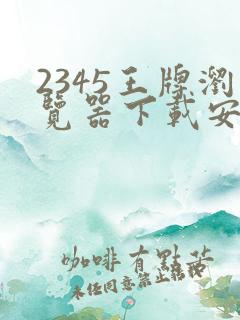 2345王牌瀏
覽器下載安
咖啡有點苦
未經同意禁止轉載